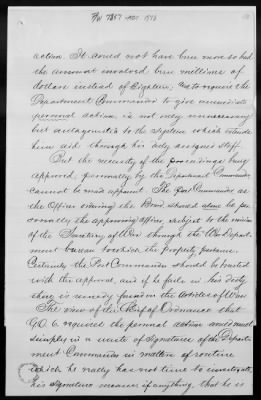 action. It could not have been more so had
the amount involved been millions of
dollars instead of Eighteen; but to require the
Department Commander to give immediate
personal action, is not only unnecessary
but antagonistic to the system which extends
him aid through his duly assigned staff.
But the necessity of the proceedings being
approved, personally by the Department Commander
cannot be made apparent. The Post Commander as
the Officer ordering the Board should alone be per
sonally the approving officer, subject to the
of the Secretary of War through the War Depart
ment bureau to which the property pertains.
Certainly the Post Commander should be trusted
with the approval, and if he fails in his duty
there is remedy found in the Articles of War.
The view of the Chief of Ordnance that
G.O. 6. required the personal action and
simply is a waste of signatures of the Depart
ment Commander in matters of routine
which he really has not time to investigate,
his signature means if anything, that he is